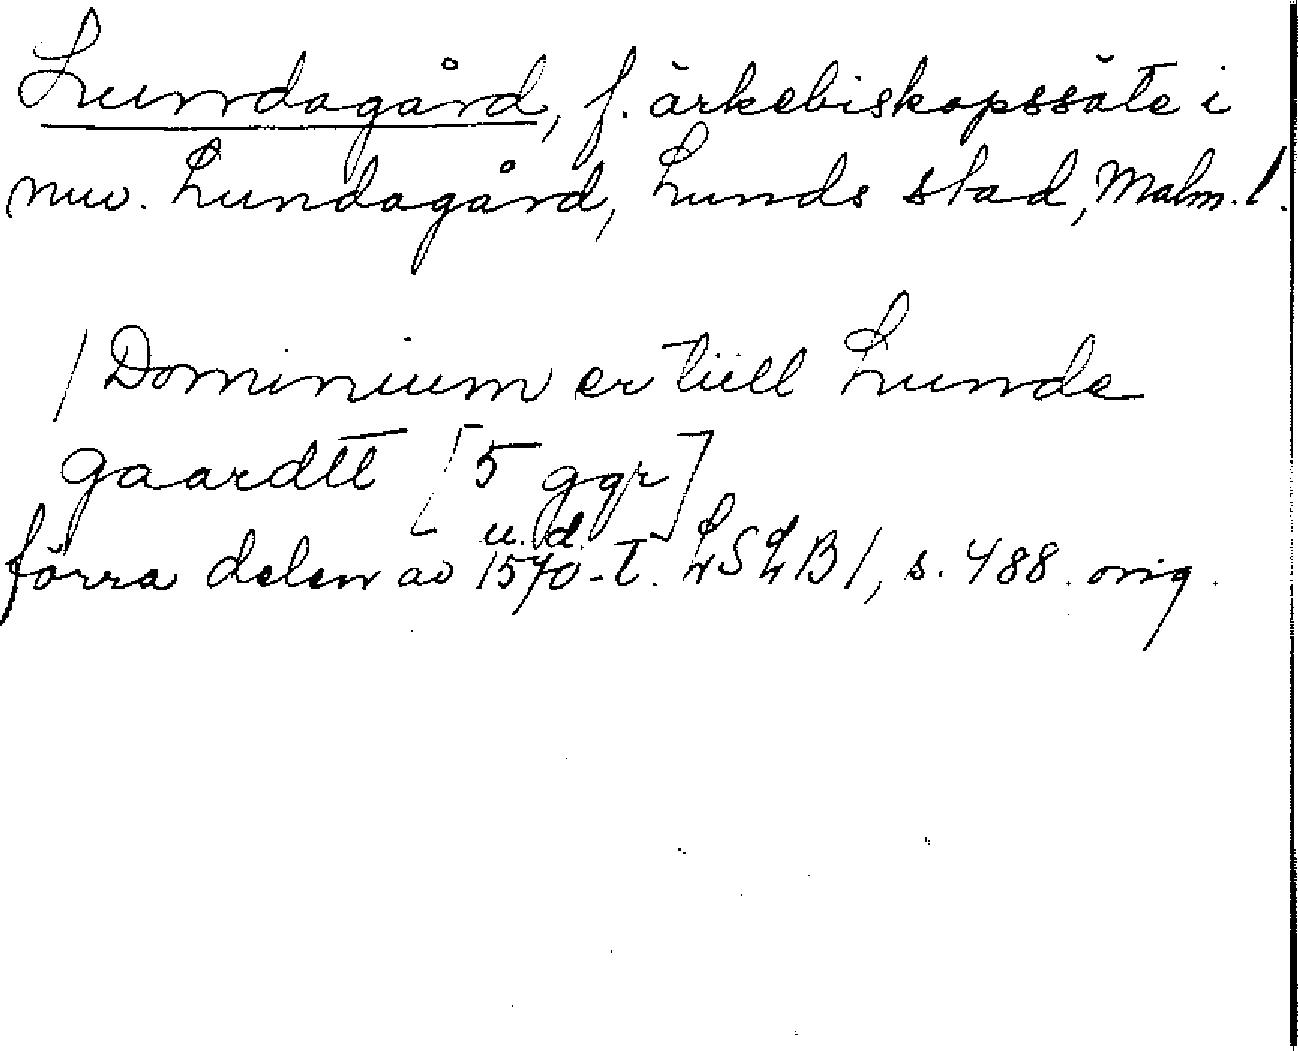 Lundagård, f. ärkebiskopssäte i
nuv. Lundagård, Lunds stad, Malm. l.
/ Dominium er tiill Lunde
gaardtt [5 ggr]
u. d.
förra delen av 1570-t. LSLB/, s. 488. orig.